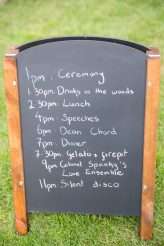 1pm: Ceremony
1.30pm: Drinks in the woods
2.30pm: Lunch
4pm: Speeches
6pm: Dean Chord
7pm: Dinner
7.30pm: Gelato & firepit
9pm: Colonel Spanky's
Love Ensemble
11pm: Silent disco